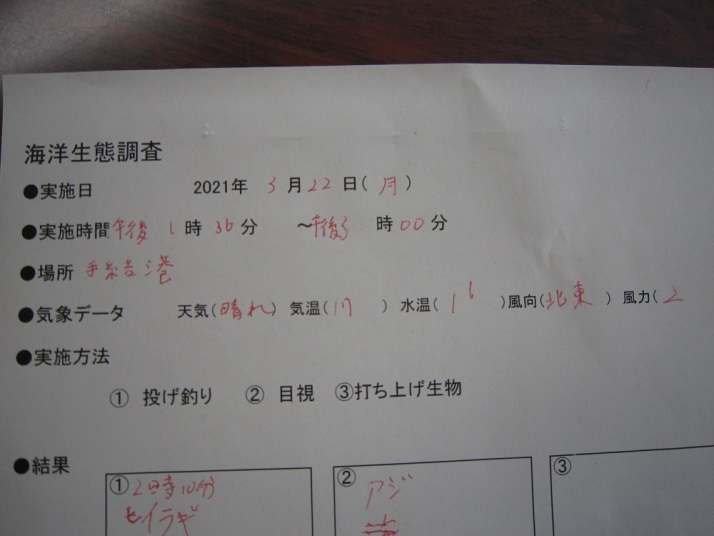 海洋生態調査
●実施日 2021年 3月22日(月)
●実施時間 午後1時36分 ～午後3時00分
●場所 手結港
●気象データ 天気(晴れ) 気温( ) 水温(16)風向(北東) 風力(2
●実施方法
① 投げ釣り ② 目視 ③打ち上げ生物
●結果
① 2時10分
ヒイラギ
② アジ
③